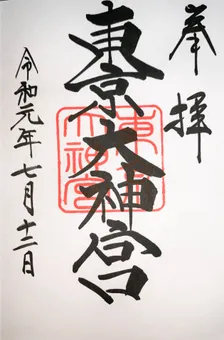 奉拝
東京大神宮
令和元年七月十二日
東京大神宮